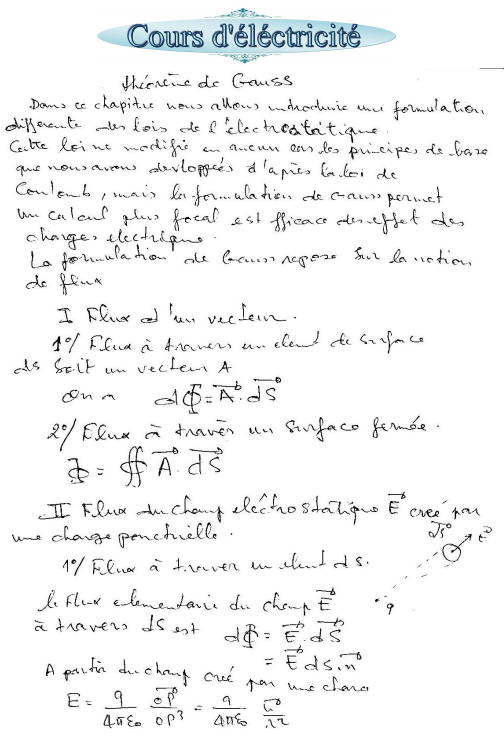 Cours d'éléctricité
théorème de Gauss
Dans ce chapitre nous allons introduire une formulation
differente des lois de l'électrostatique.
Cette loi ne modifie en aucun cas les principes de base
que nous avons devloppées d'après la loi de
Coulomb, mais la formulation de Gauss permet
un calcul plus focal est fficace des effet des
charges electrique.
La formulation de Gauss repose sur la notion
de flux
I Flux d'un vecteur.
1°/ Flux à travers un element de surface
ds Soit un vecteur A
On a dΦ = A⃗. dS⃗
2°/ Flux à travers un surface fermée.
Φ = ∯ A⃗. dS⃗
II Flux du champ electrostatique E⃗ creé par
une charge ponctuelle.
dS⃗ E⃗
1°/ Flux à traver un elemt ds.
q
le flux elementaire du champ E⃗
à travers dS est dΦ = E⃗. dS⃗
= E⃗ ds. n⃗
A partir du champ creé par une charg
E = q/4πε₀ OP⃗/OP³ = q/4πε₀ u⃗/r²